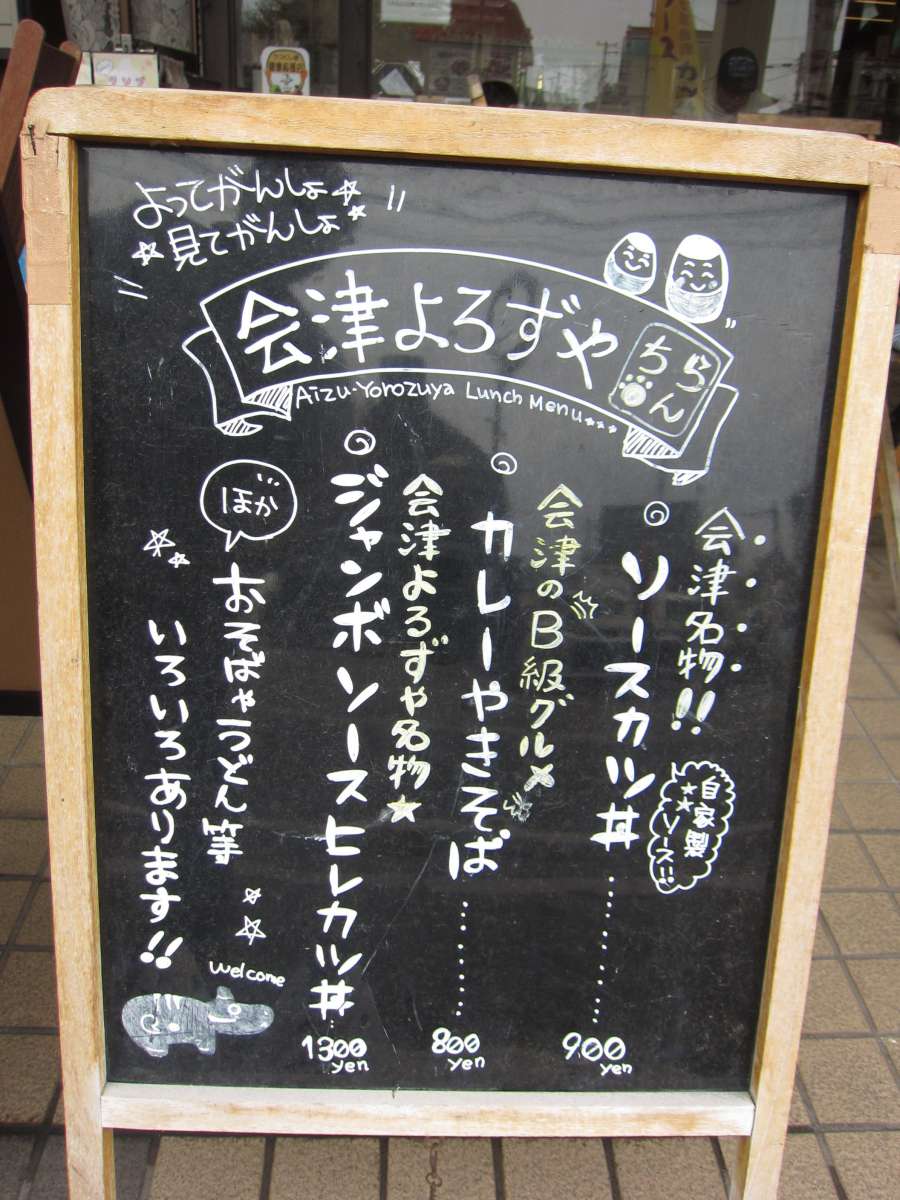 よってがんしょ
見てがんしょ
会津よろずや
らん
ち
Aizu-Yorozuya Lunch Menu...
会津名物!!
自家製
ソース!!
ソースカツ丼
900
yen
会津のB級グルメ
カレーやきそば
800
yen
会津よろずや名物
ジャンボソースヒレカツ丼
1300
yen
ほか
おそばやうどん等
いろいろあります!!
welcome